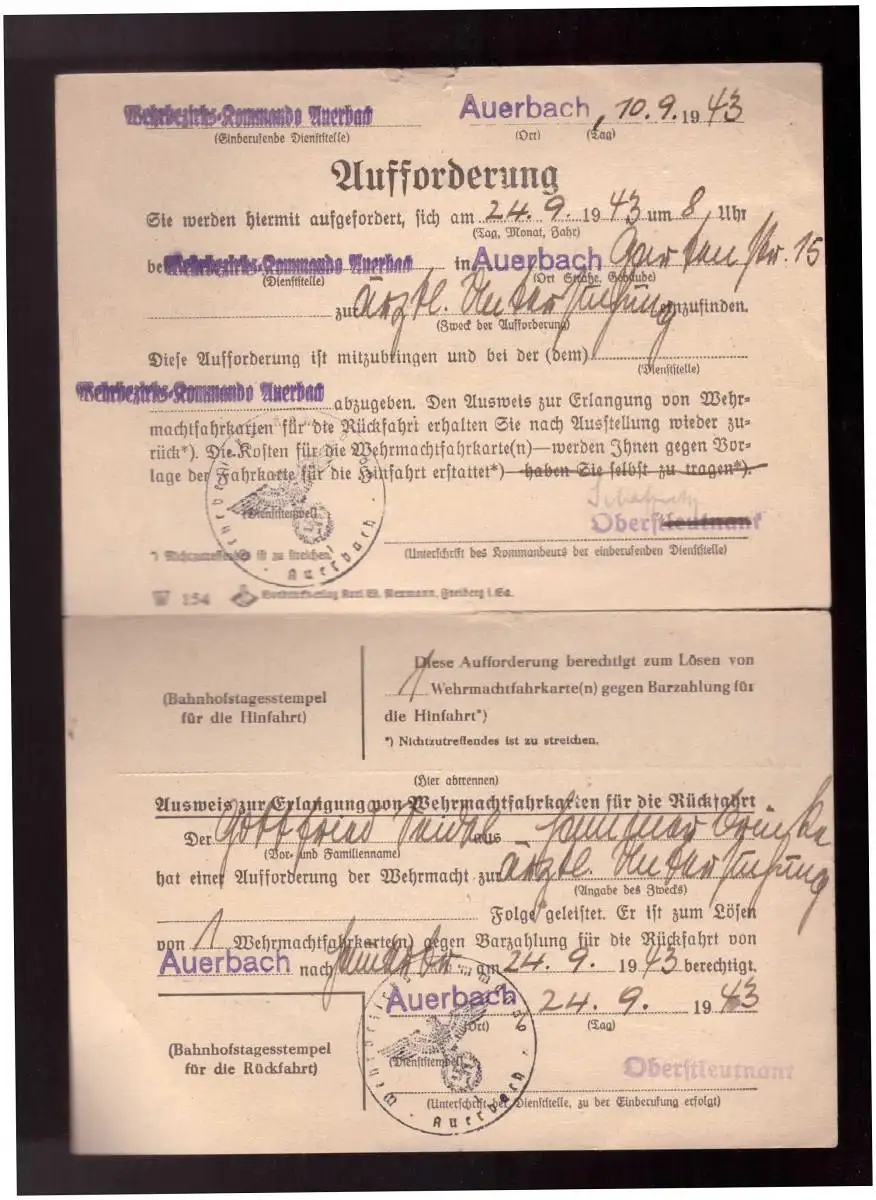 Wehrbezirks-Kommando Auerbach
Auerbach, 10. 9. 1943
(Einberufende Dienststelle)
(Ort) (Tag)
Aufforderung
Sie werden hiermit aufgefordert, sich am 24. 9. 1943 um 8 Uhr
(Tag, Monat, Jahr)
bei Wehrbezirks-Kommando Auerbach in Auerbach Gartenstr. 15
(Dienststelle) (Ort Straße, Gebäude)
zur ärztl. Untersuchung einzufinden.
(Zweck der Aufforderung)
Diese Aufforderung ist mitzubringen und bei der (dem)
(Dienststelle)
Wehrbezirks-Kommando Auerbach abzugeben. Den Ausweis zur Erlangung von Wehr-
machtfahrkarten für die Rückfahrt erhalten Sie nach Ausstellung wieder zu-
rück*). Die Kosten für die Wehrmachtfahrkarte(n)—werden Ihnen gegen Vor-
lage der Fahrkarte für die Hinfahrt erstattet*)—haben Sie selbst zu tragen*).
(Dienststempel)
Oberstleutnant
*) Nichtzutreffendes ist zu streichen.
(Unterschrift des Kommandeurs der einberufenden Dienststelle)
Auerbach
W 154 Vordruckverlag Karl W. Neumann, Freiberg i. Sa.
Diese Aufforderung berechtigt zum Lösen von
1 Wehrmachtfahrkarte(n) gegen Barzahlung für
die Hinfahrt*)
*) Nichtzutreffendes ist zu streichen.
(Bahnhofstagesstempel
für die Hinfahrt)
(Hier abtrennen)
Ausweis zur Erlangung von Wehrmachtfahrkarten für die Rückfahrt
Der Gottfried Seidel aus Hammerbrücke
(Vor- und Familienname)
hat einer Aufforderung der Wehrmacht zur ärztl. Untersuchung
(Angabe des Zwecks)
Folge geleistet. Er ist zum Lösen
von 1 Wehrmachtfahrkarte(n) gegen Barzahlung für die Rückfahrt von
Auerbach nach am 24. 9. 1943 berechtigt.
Auerbach 24. 9. 1943
(Ort) (Tag)
(Bahnhofstagesstempel
für die Rückfahrt)
(Dienststempel)
Oberstleutnant
(Unterschrift der Dienststelle, zu der Einberufung erfolgt)
Auerbach